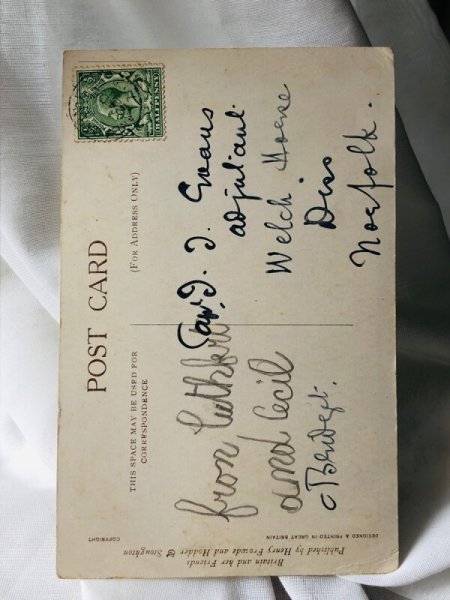 POST CARD
THIS SPACE MAY BE USED FOR
CORRESPONDENCE
(FOR ADDRESS ONLY)
HALFPENNY
from Cuthbert
and Cecil
Capt. J. J. Evans
adjutant
Welch Horse
Diss
Norfolk.
Britain and her Friends
Published by Henry Frowde and Hodder & Stoughton
DESIGNED & PRINTED IN GREAT BRITAIN
COPYRIGHT